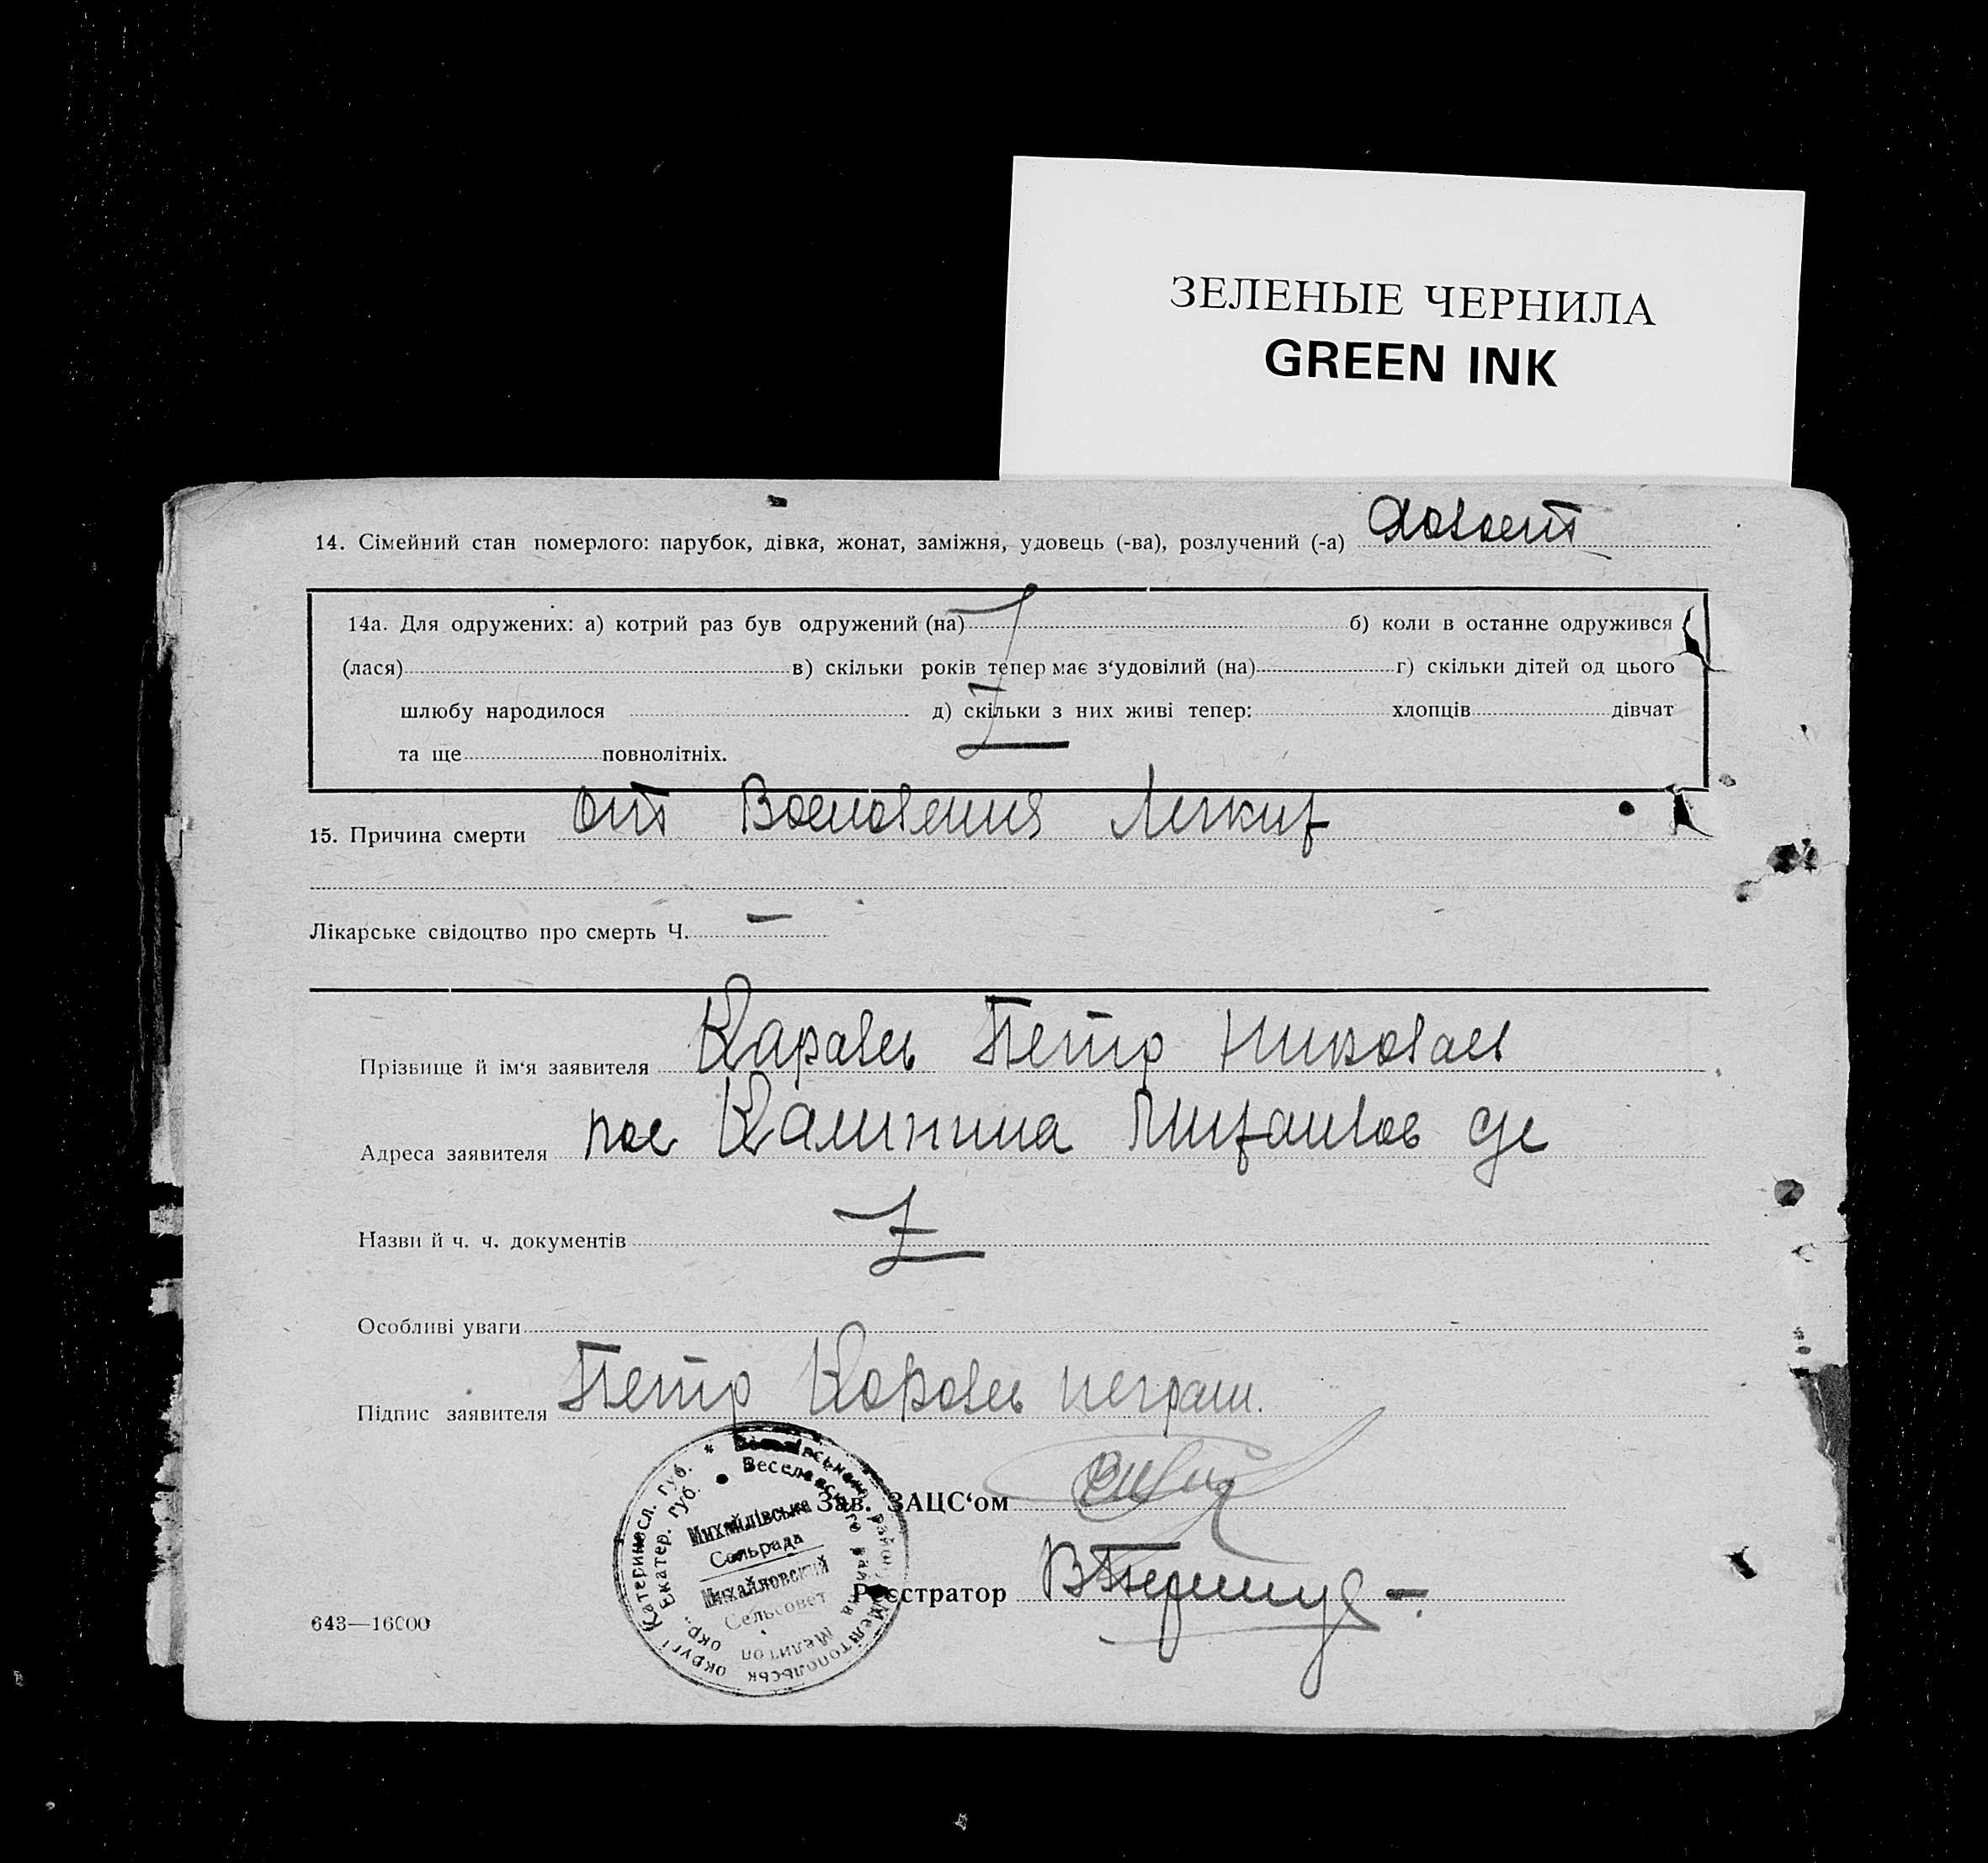 ЗЕЛЕНЫЕ ЧЕРНИЛА
GREEN INK
14. Сімейний стан померлого: парубок, дівка, жонат, заміжня, удовець (-ва), розлучений (-а)
14а. Для одружених: а) котрий раз був одружений (на) б) коли в останне одружився
(лася) в) скільки років тепер має з‘удовілий (на) г) скільки дітей од цього
шлюбу народилося д) скільки з них живі тепер: хлопців дівчат
та ще повнолітніх.
15. Причина смерти от Восполения Легких
Лікарське свідоцтво про смерть Ч. —
Прізвище й ім‘я заявителя Король Петр Николаев
Адреса заявителя пос Калинина Михайлов с/с
Назви й ч. ч. документів
Особливі уваги
Підпис заявителя Петр Король неграм.
Зав. ЗАЦС‘ом
Реєстратор
Катериносл. губ. * Веселівського району Мелітопольськ округі
Екатер. губ. • Веселовского района Мелитоп окр.
Михайлівська
Сельрада
Михайловский
Сельсовет
643—16000